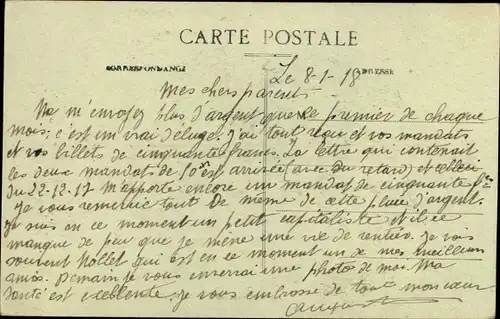 CARTE POSTALE
CORRESPONDANCE
ADRESSE
Le 8-1-18
Mes chers parents
Ne m'envoyez plus d'argent que le premier de chaque
mois, c'est un vrai déluge. J'ai tout reçu et vos mandats
et vos billets de cinquante francs. La lettre qui contenait
les deux mandats de 50 est arrivée (avec du retard) et celle ci
du 22-12-17 m'apporte encore un mandat de cinquante frs
Je vous remercie tout de même de cette pluie d'argent.
Je suis en ce moment un petit capitaliste et il ne
manque de peu que je mène une vie de rentier. Je vois
souvent Nollet qui est en ce moment un de mes meilleurs
amis. Demain je vous enverrai une photo de moi. Ma
santé est excellente. Je vous embrasse de tout mon cœur